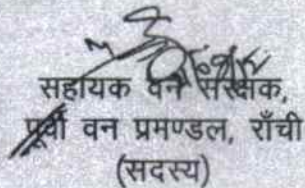 सहायक वन संरक्षक,
पूर्वी वन प्रमण्डल, राँची
(सदस्य)